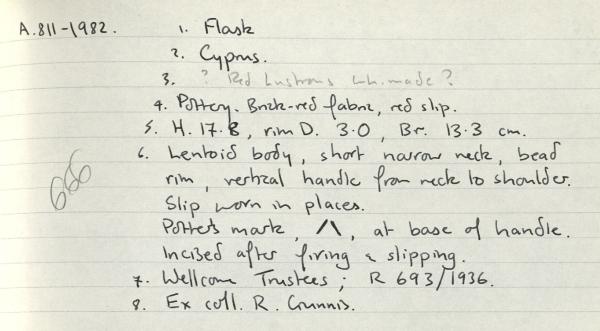 A.811-1982. 1. Flask
2. Cyprus.
3. ? Red Lustrous wh.made ?
4. Pottery. Brick-red fabric, red slip.
5. H. 17.8, rim D. 3.0, Br. 13.3 cm.
6. Lentoid body, short narrow neck, bead
rim, vertical handle from neck to shoulder.
Slip worn in places.
Potter's mark, /\\, at base of handle.
Incised after firing & slipping.
7. Wellcome Trustees; R 693/1936.
8. Ex coll. R. Gunnis.
666